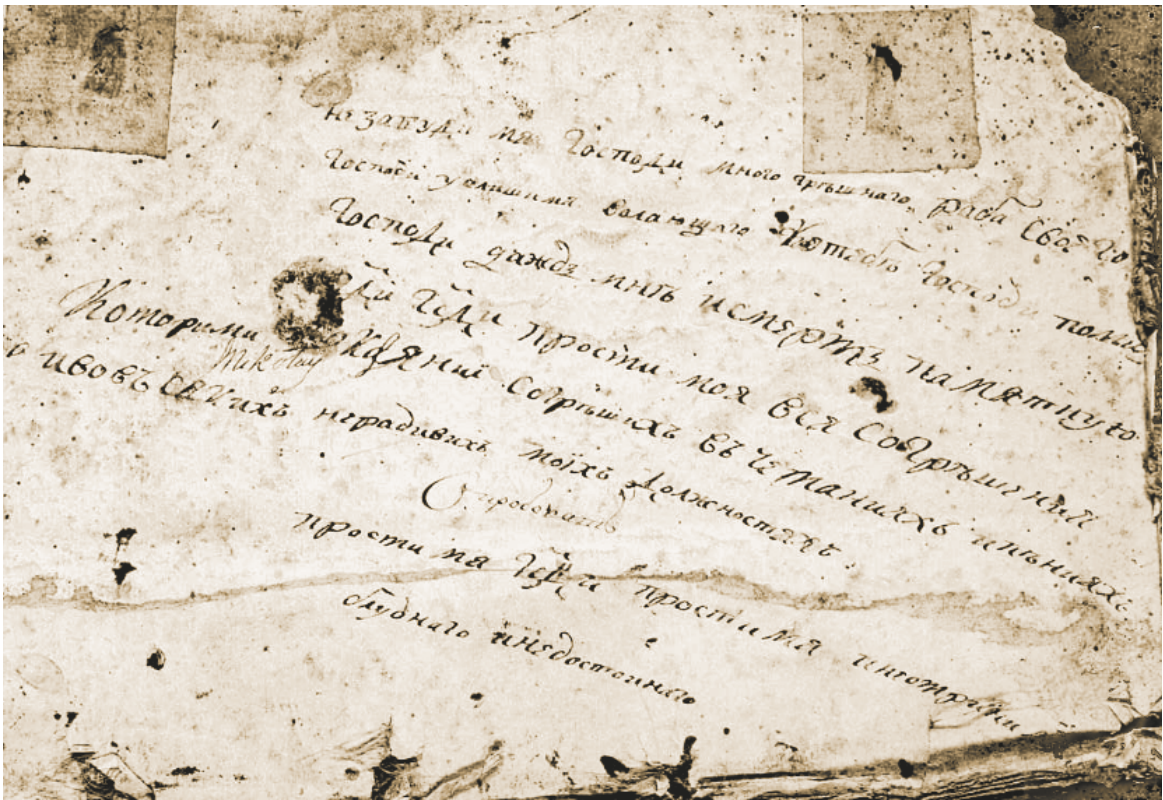 Незабуди мя Господи много грѣшнаго, раба Своего
Господи услишимя волающаго Ктотебѣ Господи помил
Господи даждь мнѣ исмерть памятную
ГДи прости моя вся Согрѣшения
Которими окаяний Согрѣшихъ въ Чѣтанияхъ ипѣнияхъ
Mikołay
ивовъ всѣхъ нерадивихъ моїхъ Должностехъ
Спробовать
прости мя ГДи простимя инеотрини
блуднаго инедостойнаго